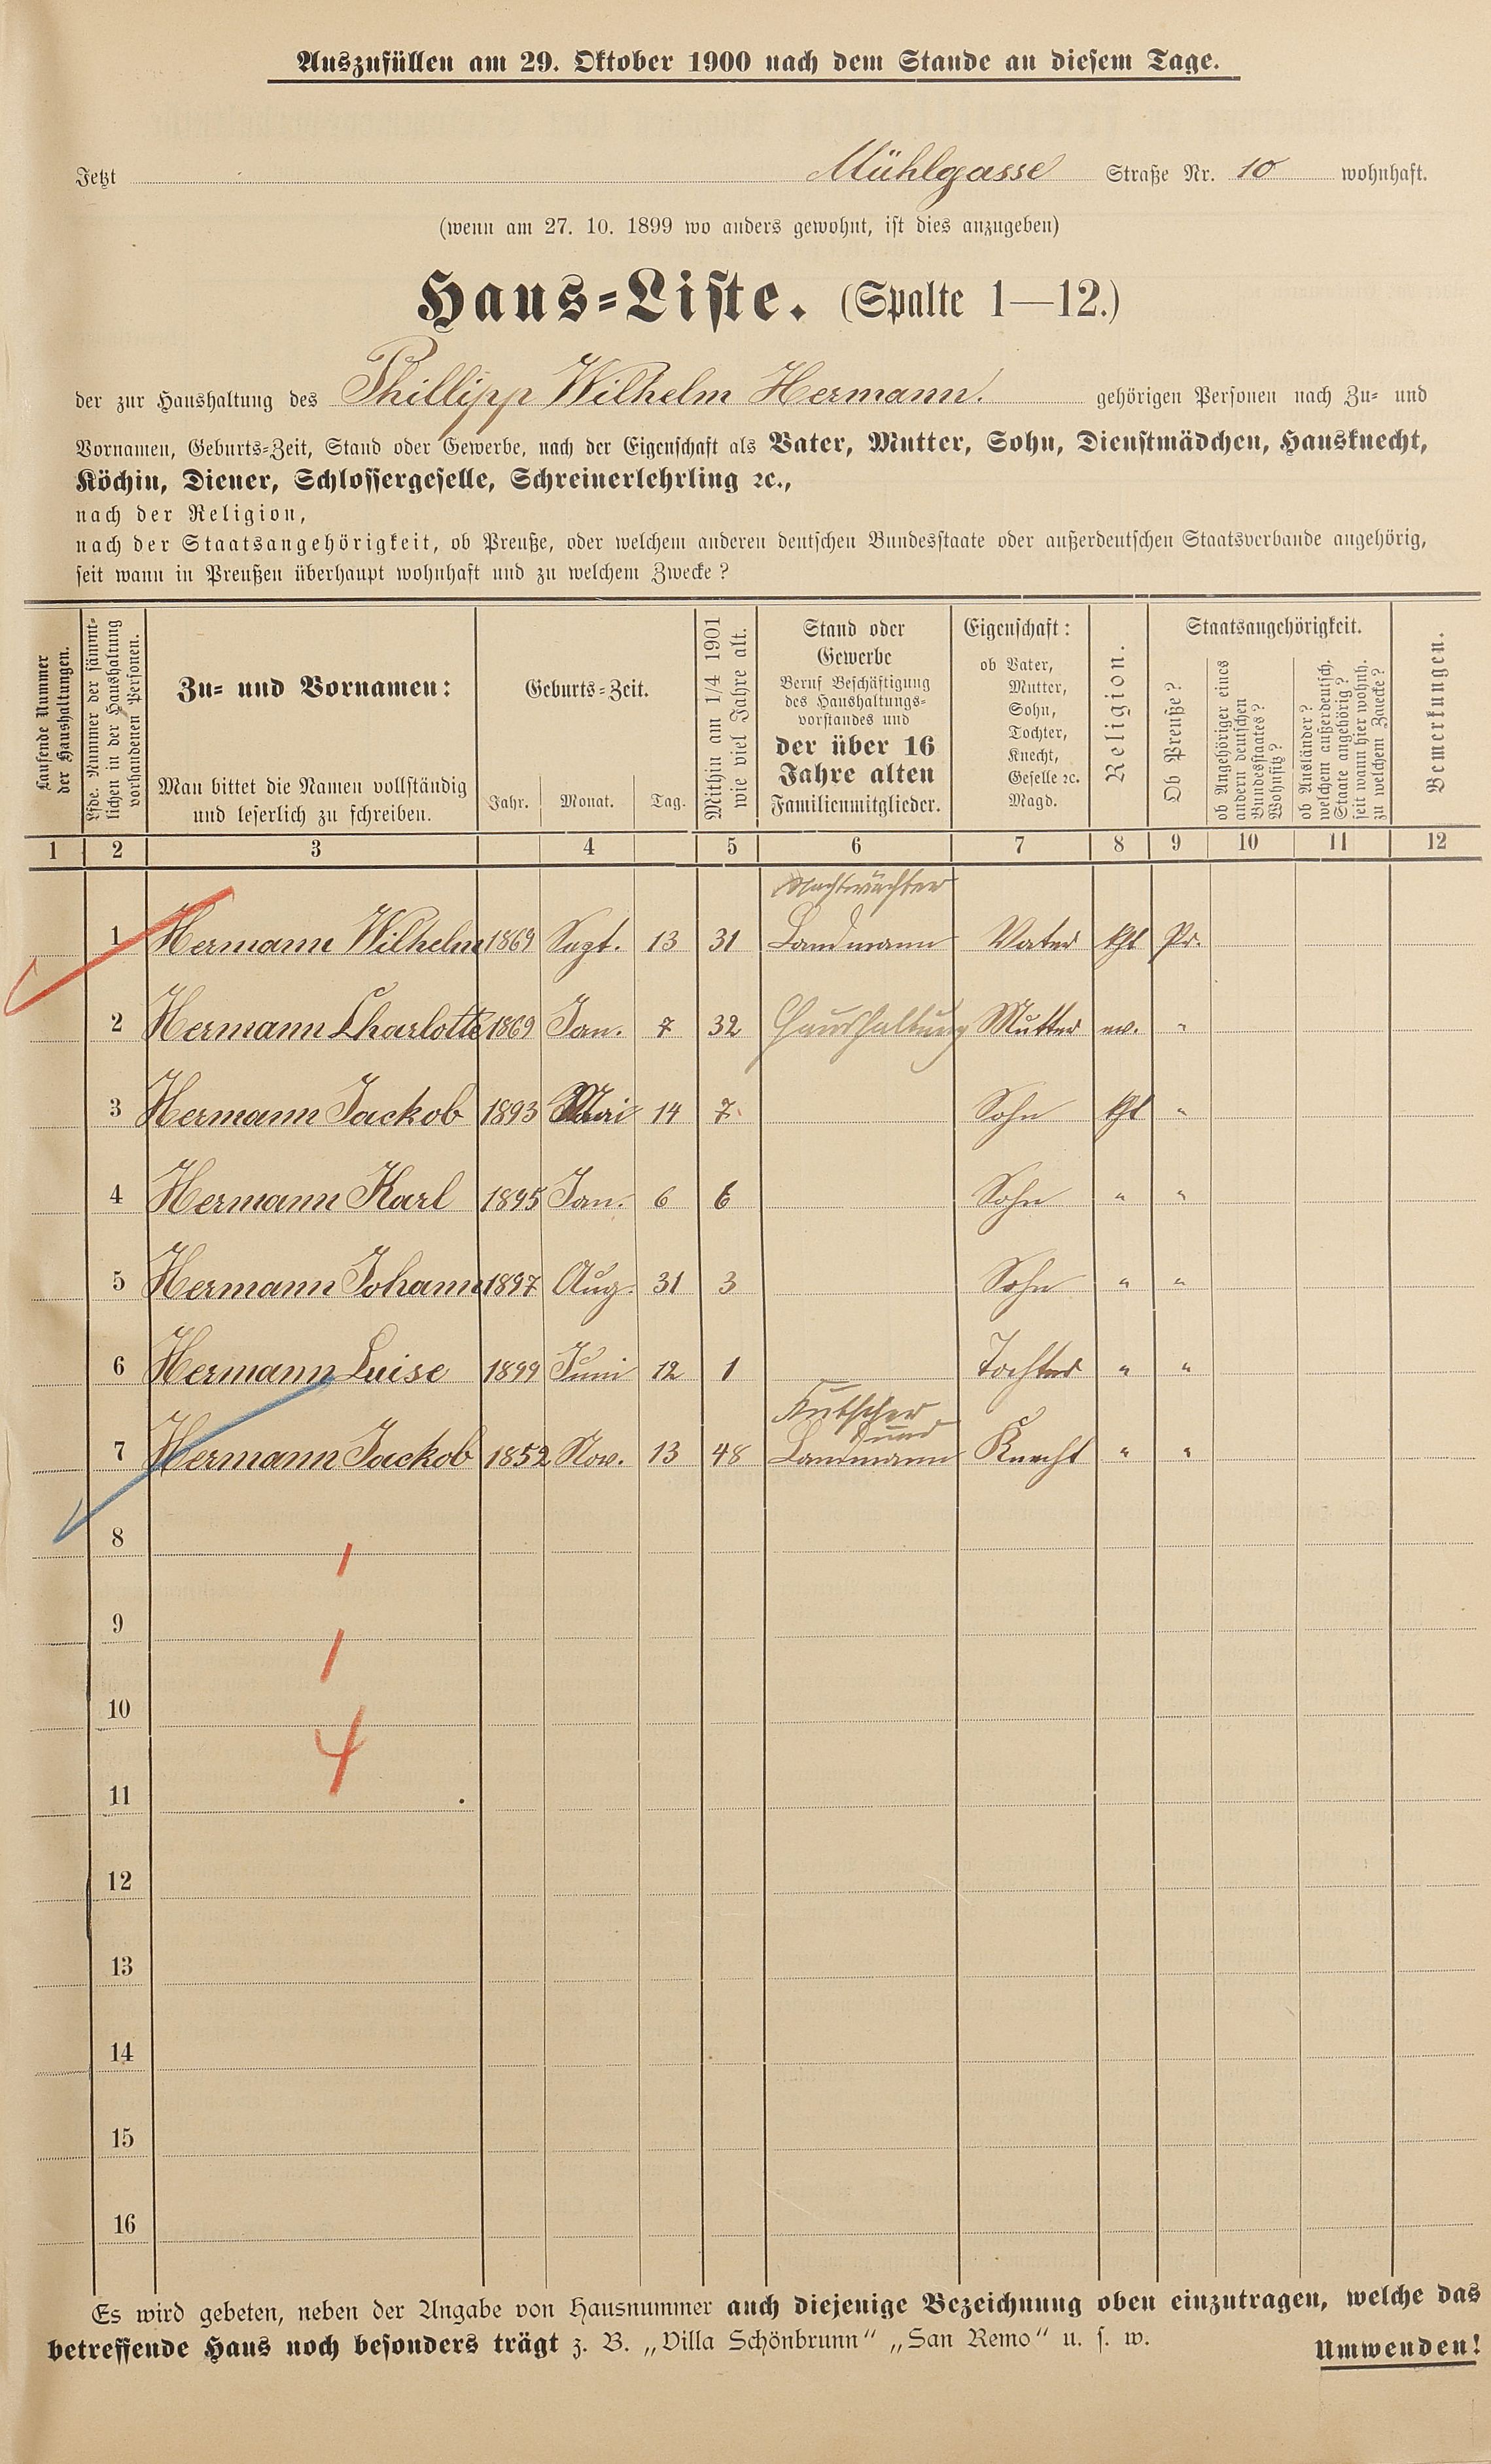 Auszufüllen am 29. Oktober 1900 nach dem Stande an diesem Tage.
Jetzt Mühlgasse Straße Nr. 10 wohnhaft.
(wenn am 27. 10. 1899 wo anders gewohnt, ist dies anzugeben)
Haus-Liste. (Spalte 1—12.)
der zur Haushaltung des Phillipp Wilhelm Hermann. gehörigen Personen nach Zu- und
Vornamen, Geburts-Zeit, Stand oder Gewerbe, nach der Eigenschaft als Vater, Mutter, Sohn, Dienstmädchen, Hausknecht,
Köchin, Diener, Schlossergeselle, Schreinerlehrling ꝛc.,
nach der Religion,
nach der Staatsangehörigkeit, ob Preuße, oder welchem anderen deutschen Bundesstaate oder außerdeutschen Staatsverbande angehörig,
seit wann in Preußen überhaupt wohnhaft und zu welchem Zwecke?
Laufende Nummer
der Haushaltungen.
Lfde. Nummer der sämmt-
lichen in der Haushaltung
vorhandenen Personen.
Zu- und Vornamen:
Man bittet die Namen vollständig
und leserlich zu schreiben.
Geburts-Zeit.
Jahr. Monat. Tag.
Mithin am 1/4 1901
wie viel Jahre alt.
Stand oder
Gewerbe
Beruf Beschäftigung
des Haushaltungs-
vorstandes und
der über 16
Jahre alten
Familienmitglieder.
Eigenschaft:
ob Vater,
Mutter,
Sohn,
Tochter,
Knecht,
Geselle ꝛc.
Magd.
Religion.
Staatsangehörigkeit.
Ob Preuße?
ob Angehöriger eines
andern deutschen
Bundesstaates?
Wohnsitz?
ob Ausländer?
welchem außerdeutsch.
Staate angehörig?
seit wann hier wohnh.
zu welchem Zwecke?
Bemerkungen.
1 2 3 4 5 6 7 8 9 10 11 12
Nachtwächter
1 Hermann Wilhelm 1869 Sept. 13 31 Landmann Vater kth Pr.
2 Hermann Charlotte 1869 Jan. 7 32 Haushaltung Mutter ev. "
3 Hermann Jackob 1893 Mai 14 7 Sohn kth "
4 Hermann Karl 1895 Jan. 6 6 Sohn " "
5 Hermann Johann 1897 Aug. 31 3 Sohn " "
6 Hermann Luise 1899 Juni 12 1 Tochter " "
Kutscher
und
7 Hermann Jackob 1852 Nov. 13 48 Landmann Knecht " "
8
1
9
1
10
4
11
12
13
14
15
16
Es wird gebeten, neben der Angabe von Hausnummer auch diejenige Bezeichnung oben einzutragen, welche das
betreffende Haus noch besonders trägt z. B. „Villa Schönbrunn“ „San Remo“ u. s. w.
Umwenden!